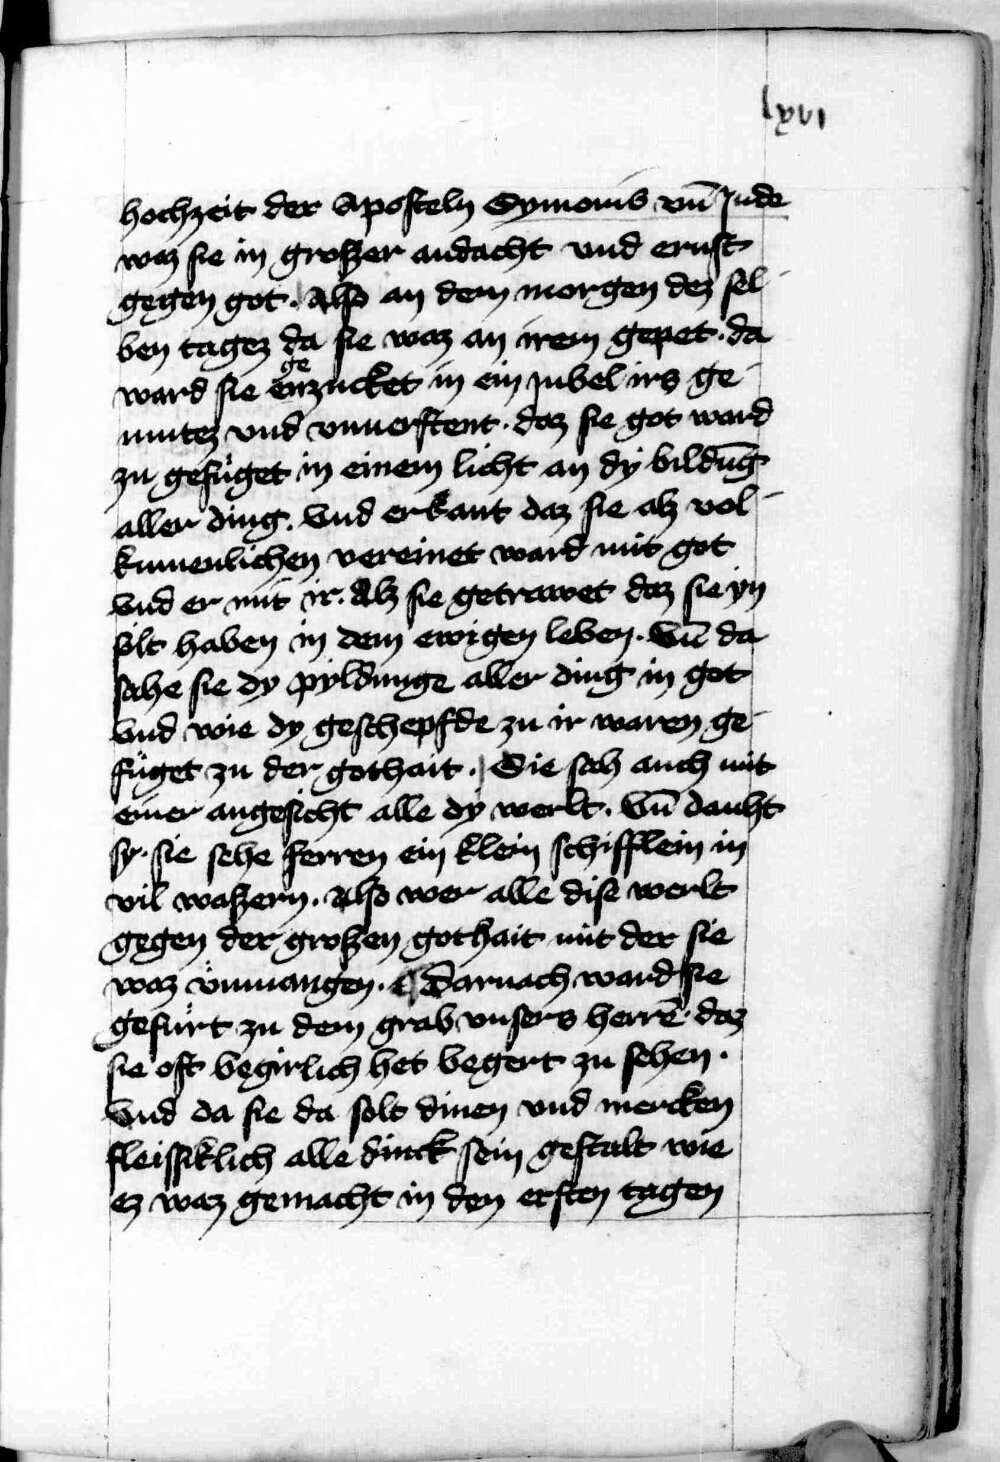 lxvi
hochzeit der Aposteln Symonis vn̄ Jude
waz sie in groſzer andacht vnd ernſt
gegen got. Alſo an dem morgen dez ſel
ben tagez da ſie waz an irem gepet. da
ward ſie enzucket in ein jubel irs ge
mutez vnd vnuerſtent. daz ſie got ward
zu gefüget in einem licht an dÿ bildūg
aller ding. Vnd erkant daz ſie alz vol
kumenlichen vereinet ward mit got
Vnd er mit ir. Alz ſie getrawet daz ſie yn
ſölt haben in dem ewigen leben. Vn̄ da
ſahe ſie dy pyldunge aller ding in got
Vnd wie dy geſchepfde zu ir waren ge
füget zu der gothait. Sie ſah auch mit
einer angeſicht alle dÿ werlt. Vn̄ dauht
ſy. ſie ſehe ferren ein klein ſchifflein in
vil waſzern. Alſo wer alle diſe werlt
gegen der groſzen gothait mit der ſie
waz vmuangen. Darnach ward ſie
gefürt zu dem grab vnſers herrē. daz
ſie oft begirlich het begert zu ſehen.
Vnd da ſie da ſolt dinen vnd mercken
fleiſſiklich alle dinck ſein geſtalt wie
ez waz gemacht in den erſten tagen